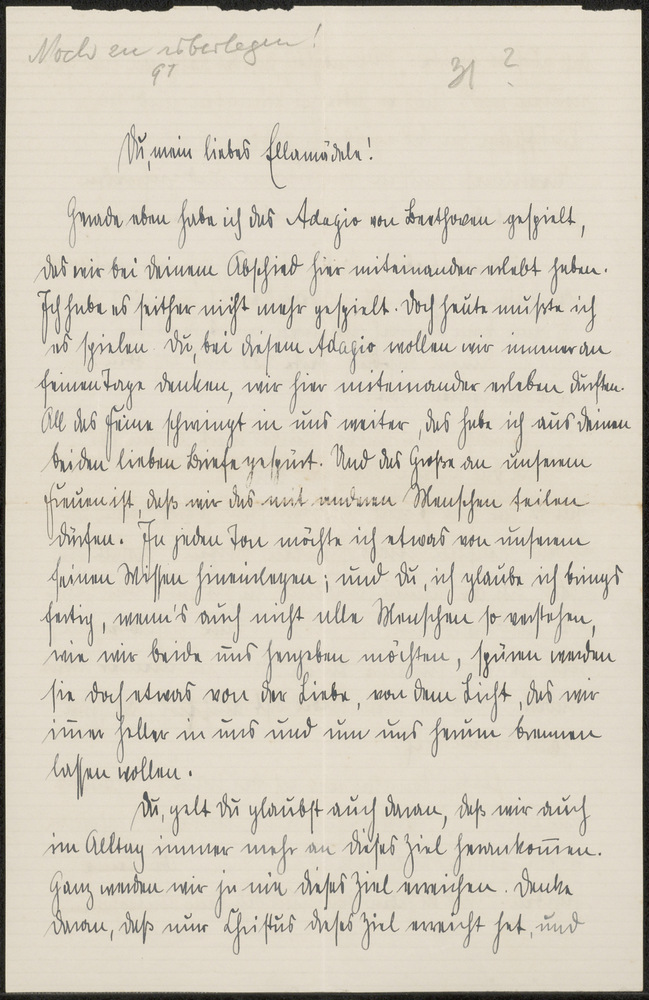 Noch zu überlegen!
31 ?
Du, mein liebes Ellamädele!
Gerade eben habe ich das Adagio von Beethoven gespielt,
das wir bei Deinem Abschied hier miteinander erlebt haben.
Ich habe es seither nicht mehr gespielt. Doch heute mußte ich
es spielen. Du, bei diesem Adagio wollen wir immer an
feinen Tage denken, wir hier miteinander erleben durften.
All das Feine schwingt in uns weiter, das habe ich aus Deinen
beiden lieben Briefe gespürt. Und das Große an unserem
Freuen ist, daß wir das mit anderen Menschen teilen
dürfen. In jeden Ton möchte ich etwas von unserem
feinen Wissen hineinlegen; und Du, ich glaube ich brings
fertig, wenn's auch nicht alle Menschen so verstehen,
wie wir beide uns hergeben möchten, spüren werden
sie doch etwas von der Liebe, von dem Licht, das wir
immer heller in uns und um uns herum brennen
lassen wollen.
Du, gelt Du glaubst auch daran, daß wir auch
im Alltag immer mehr an dieses Ziel herankommen.
Ganz werden wir ja nie dieses Ziel erreichen. Denke
daran, daß nur Christus dieses Ziel erreicht hat, und